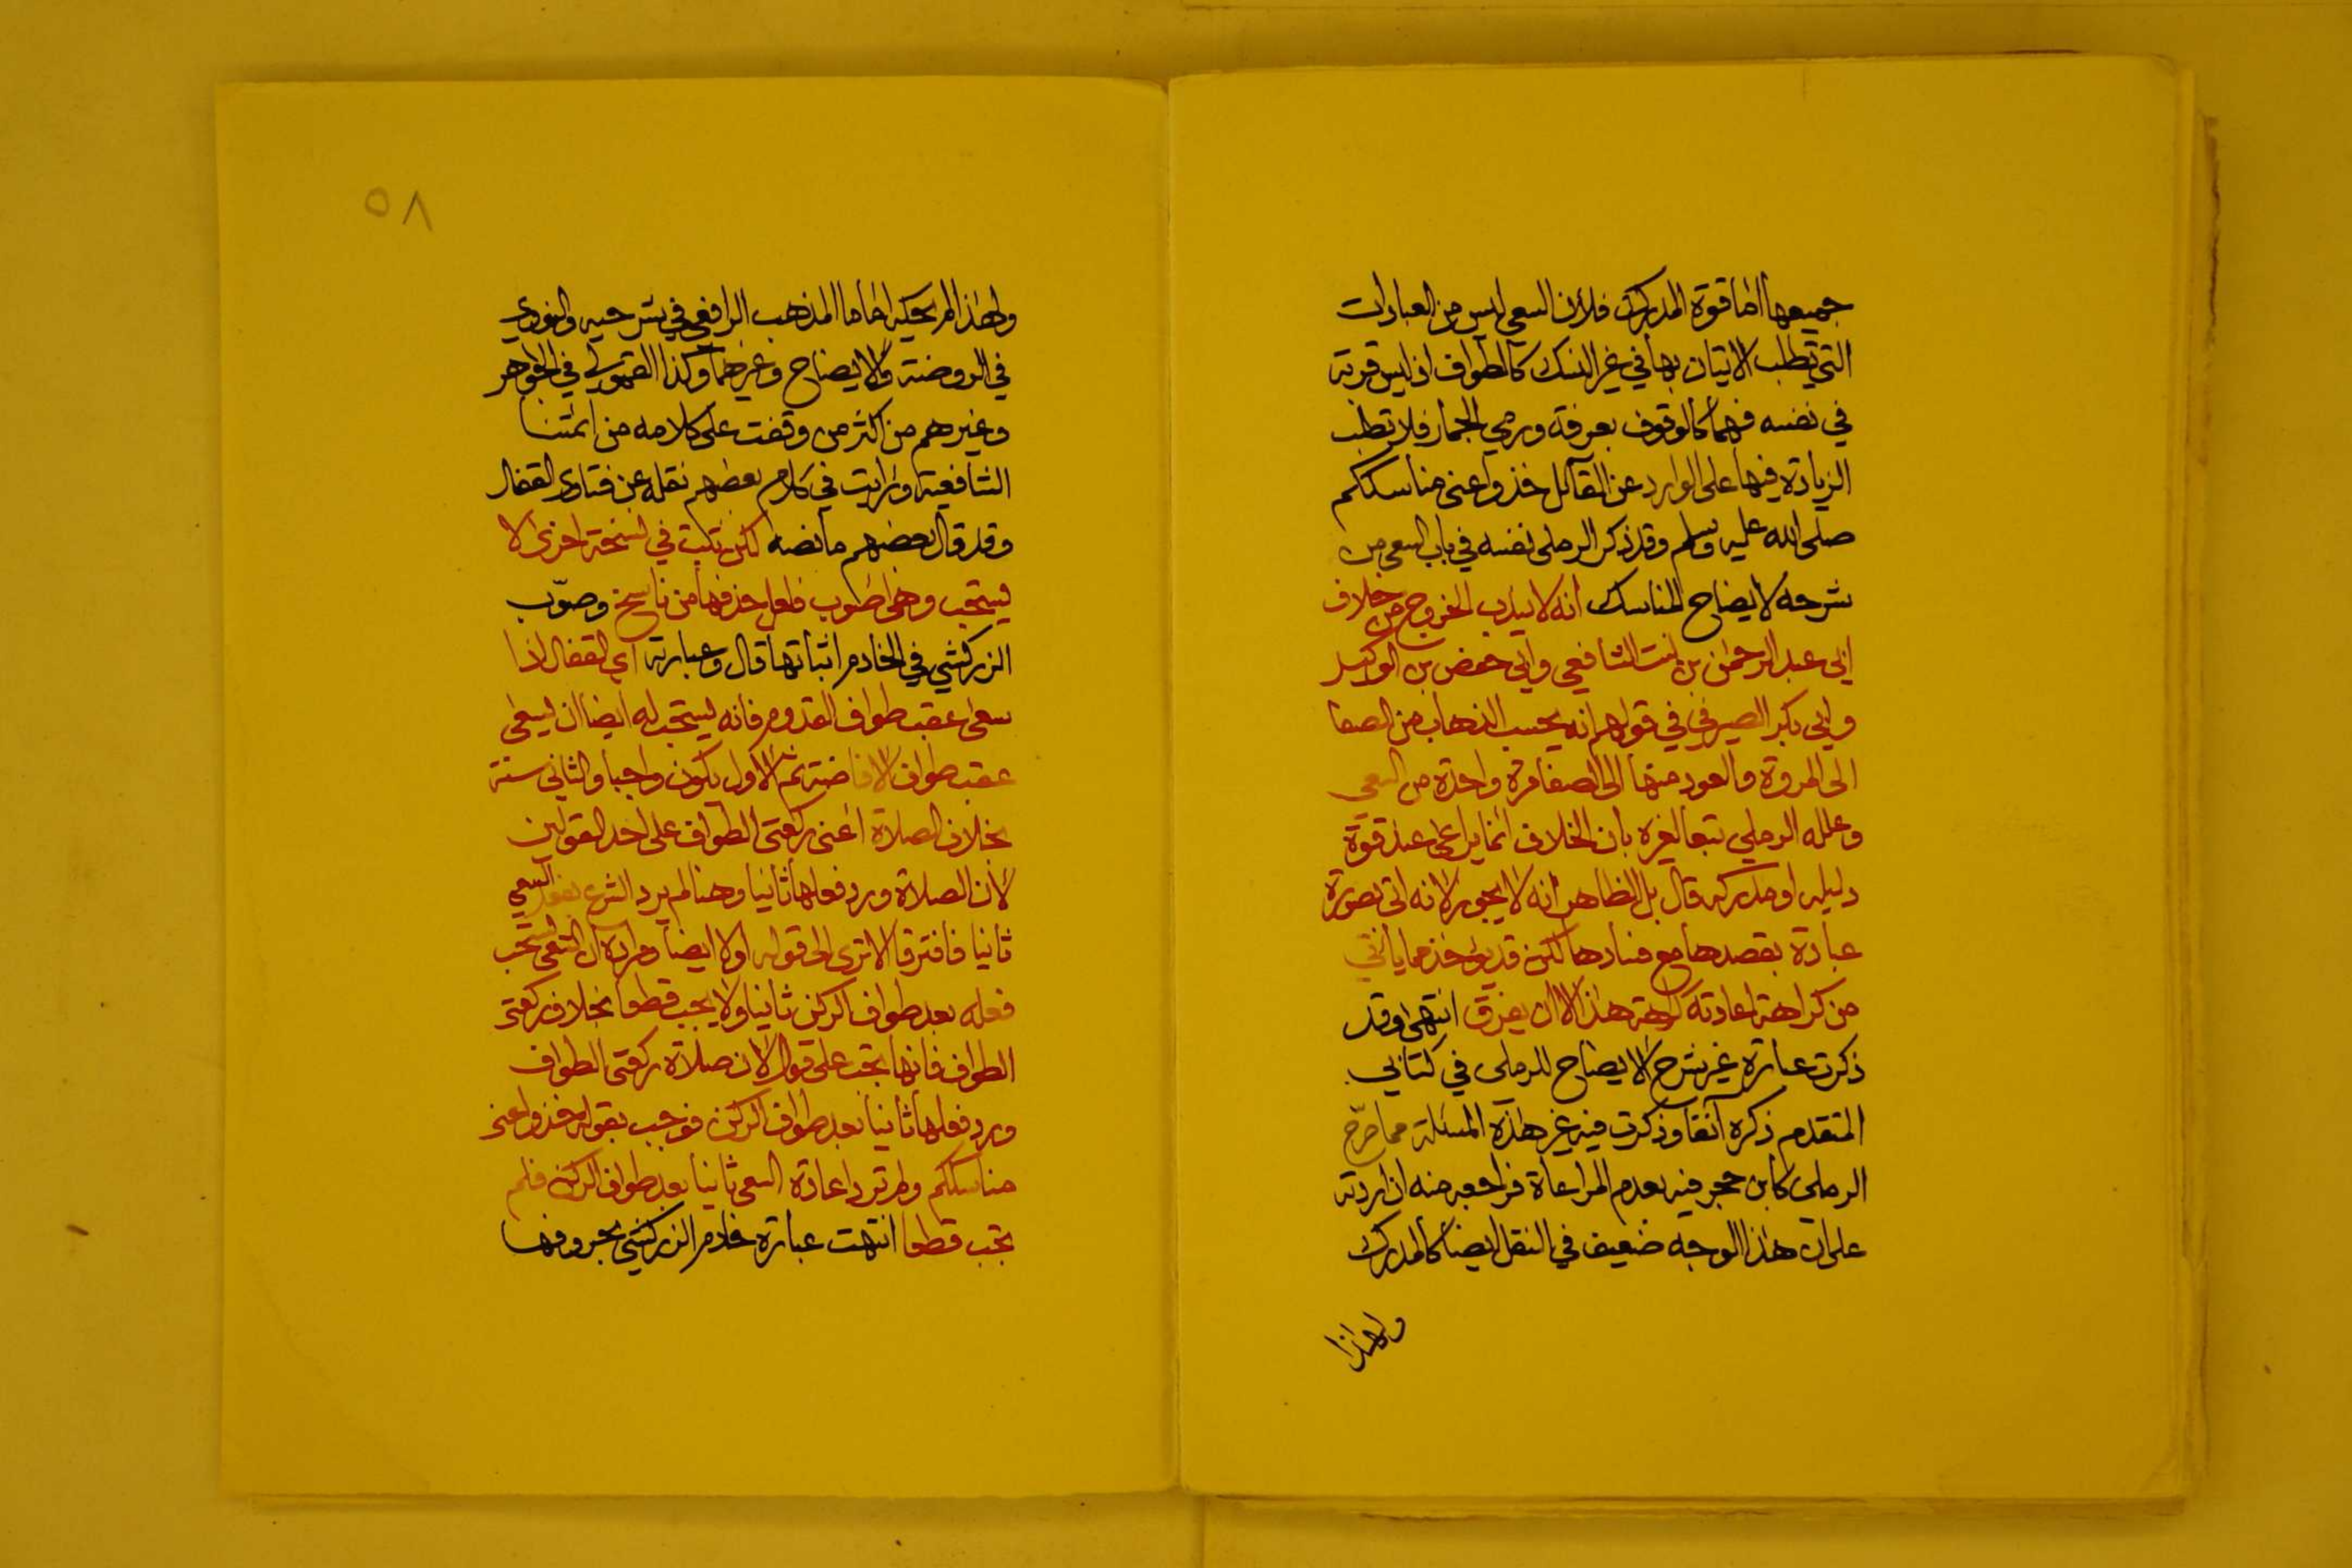 جميعها اما قوة المدرك فلأن السعي ليس من العبادات
التي تطلب الاتيان بها في غير النسك كالطواف اذ ليس قربة
في نفسه فهما كالوقوف بعرفة ورمي الجمار فلا تطلب
الزيادة فيها على الوارد عن القائل خذوا عني مناسككم
صلى الله عليه وسلم وقد ذكر الرملي نفسه في باب السعي من
شرحه لايضاح المناسك انه لا يندب الخروج من خلاف
ابي عبد الرحمن بن بنت الشافعي وابي حفص بن الوكيل
وابي بكر الصيرفي في قولهم انه يحسب الذهاب من الصفا
الى المروة والعود منها الى الصفا مرة واحدة من السعي
وعلله الرملي تبعا لغيره بان الخلاف انما يراعى عند قوة
دليله او مدركه قال بل الظاهر انه لا يجوز لانه اتى بصورة
عبادة بقصدها مع فسادها لكن قد يؤخذ مما ياتي
من كراهة اعادته كراهة هذا الا ان يفرق انتهى وقد
ذكرت عبارة غير شرح الايضاح للرملي في كتابي
المتقدم ذكره آنفا وذكرت فيه غير هذه المسئلة مما صرح
الرملي كابن حجر فيه بعدم المراعاة فراجعه منه ان اردته
على ان هذا الوجه ضعيف في النقل ايضا كالمدرك
ولهذا
٥٨
ولهذا لم يحكه اماما المذهب الرافعي في شرحيه والنووي
في الروضة والايضاح وغيرهما وكذا القمولي في الجواهر
وغيرهم من اكثر من وقفت على كلامه من ائمتنا
الشافعية ورايت في كلام بعضهم نقله عن فتاوى القفال
وقد قال بعضهم ما نصه لكن كتب في نسخة اخرى لا
يستحب وهي اصوب فلعل حذفها من ناسخ وصوّب
الزركشي في الخادم اثباتها قال وعبارته اي القفال اذا
سعى عقب طواف القدوم فانه يستحب له ايضا ان يسعى
عقب طواف الافاضة ثم الاول يكون واجبا والثاني سنة
بخلاف الصلاة اعني ركعتي الطواف على احد القولين
لأن الصلاة ورد فعلها ثانيا وهنا لم يرد الشرع بفعل السعي
ثانيا فافترقا الا ترى الى قوله اولا ايضا ومراده ان السعي يستحب
فعله بعد طواف الركن ثانيا ولا يجب قطعا بخلاف ركعتي
الطواف فانها تجب على قول لان صلاة ركعتي الطواف
ورد فعلها ثانيا بعد طواف الركن فوجب بقوله خذوا عني
مناسككم ولم ترد اعادة السعي ثانيا بعد طواف الركن فلم
تجب قطعا انتهت عبارة خادم الزركشي بحروفها